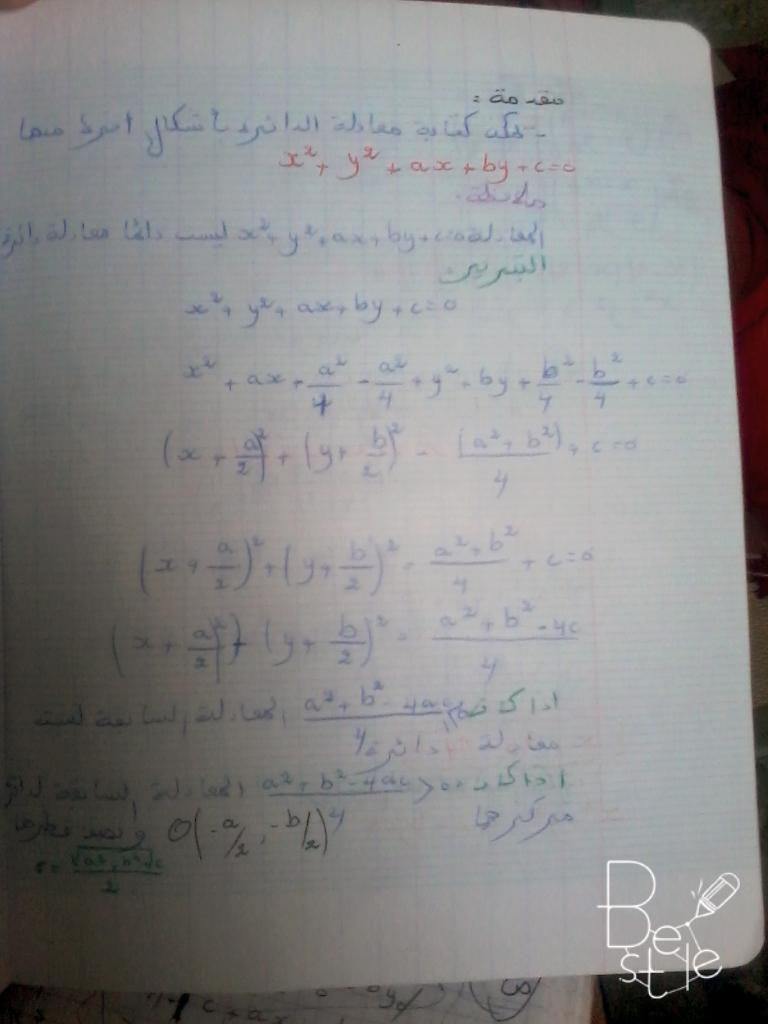 مقدمة :
- يمكن كتابة معادلة الدائرة بأشكال أخرى منها
x² + y² + ax + by + c = 0
ملاحظة:
المعادلة x² + y² + ax + by + c = 0 ليست دائما معادلة دائرة
x² + y² + ax + by + c = 0
x² + ax + a²/4 - a²/4 + y² + by + b²/4 - b²/4 + c = 0
(x + a/2)² + (y + b/2)² - (a² + b²)/4 + c = 0
(x + a/2)² + (y + b/2)² = a² + b²/4 + c = 0
(x + a/2)² + (y + b/2)² = a² + b² - 4c/4
اذا كان a² + b² - 4ac/4 المعادلة السابقة ليست
معادلة دائرة
اذا كان a² + b² - 4ac/4 > 0 المعادلة السابقة
مركزها O(-a/2, -b/2) ونصف قطرها
Be
style